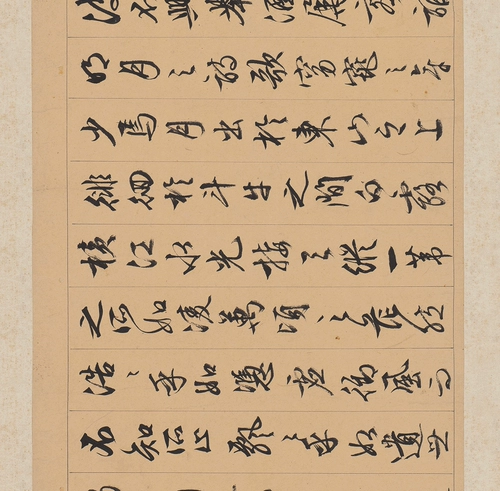 波不興舉酒屬客誦
明月之詩歌窈窕之章
少焉月出於東山之上
徘徊於斗牛之間白露
橫江水光接天縱一葦
之所如凌萬頃之茫然
浩〻乎如憑虛御風而
不知所止飄〻乎如遺世